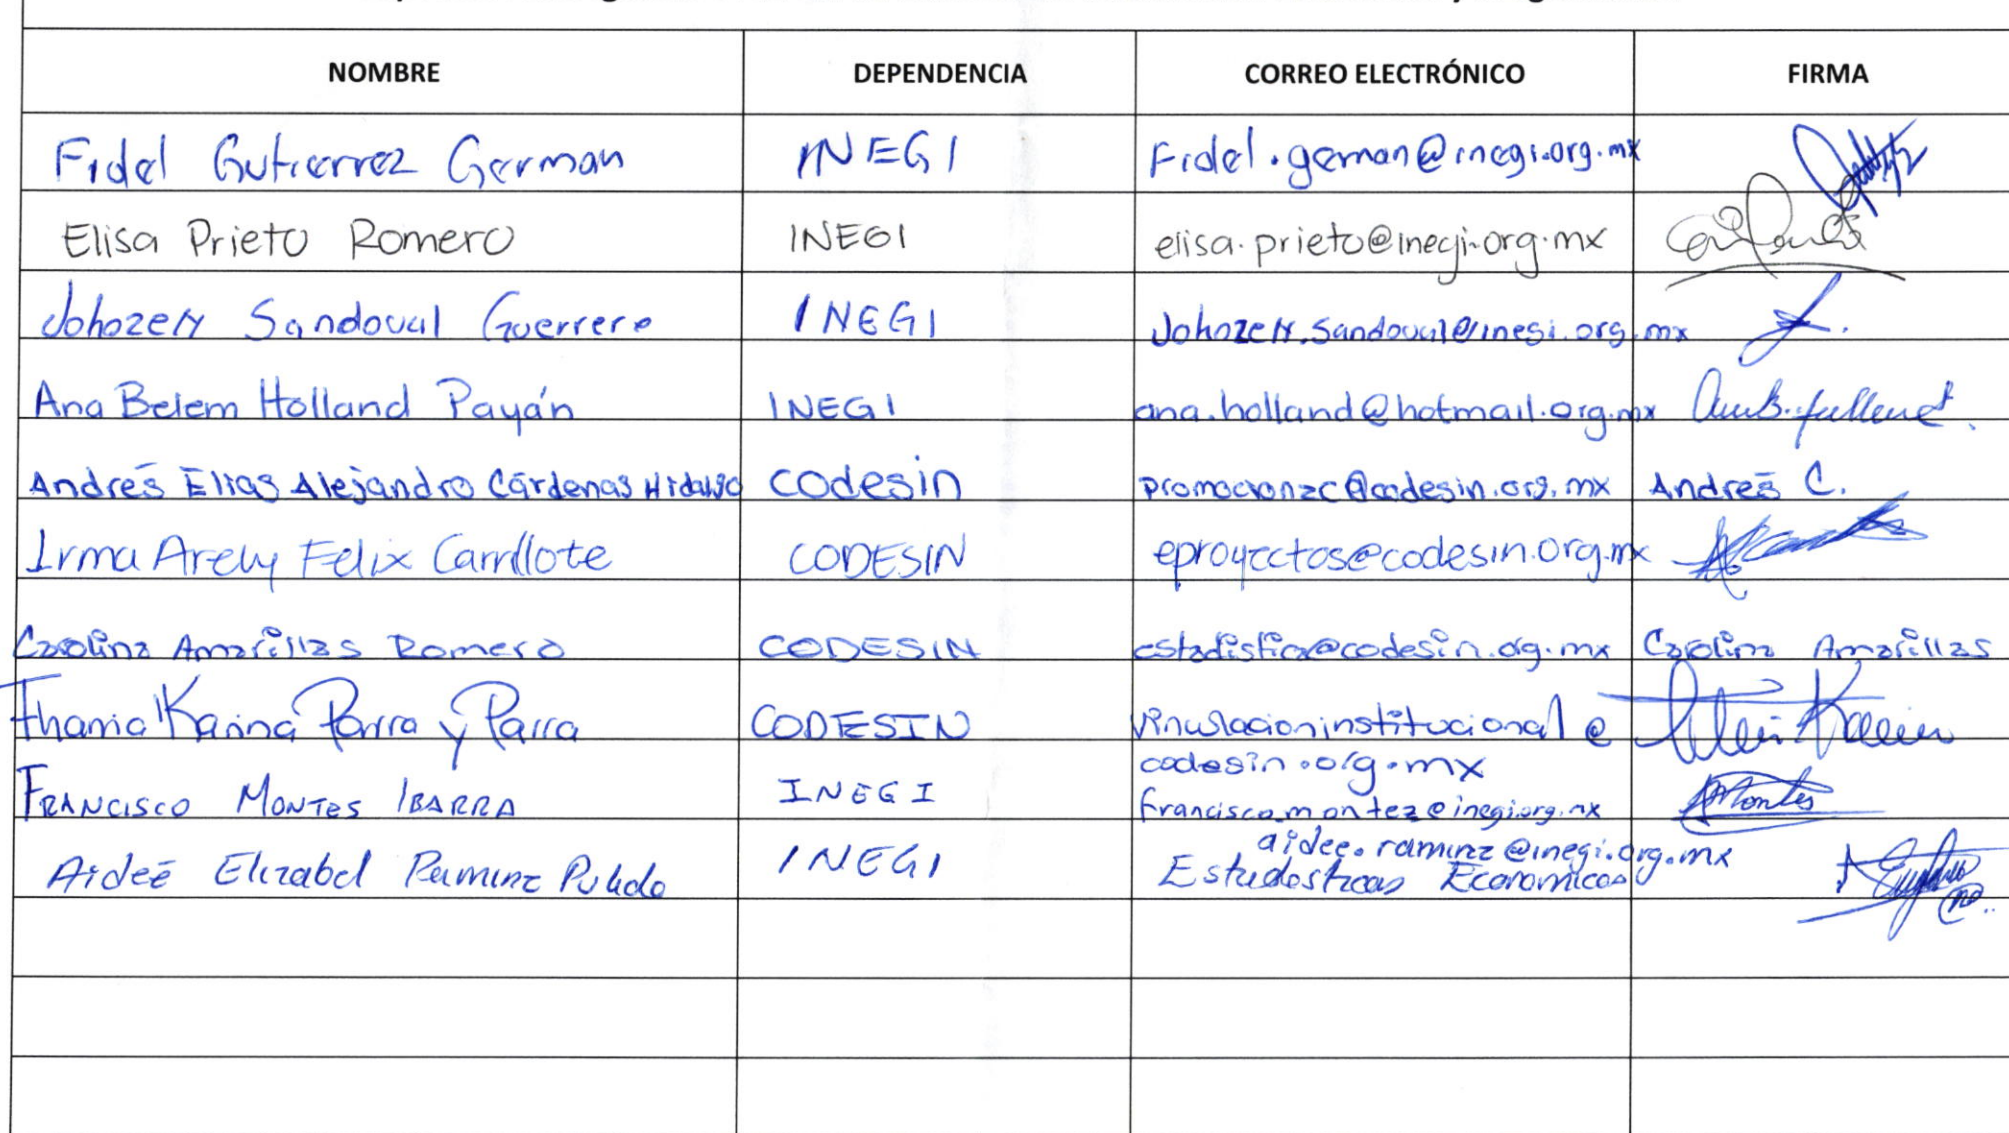 NOMBRE DEPENDENCIA CORREO ELECTRÓNICO FIRMA
Fidel Gutierrez German INEGI Fidel.geman@inegi.org.mx
Elisa Prieto Romero INEGI elisa.prieto@inegi.org.mx
Sandoval Guerrero INEGI
Ana Belem Holland Payán INEGI ana.holland@hotmail.org.mx
Andrés Elias Alejandro Cárdenas Hidalgo codesin promocionzc@codesin.org.mx Andrés C.
Irma Arely Felix Carrillote CODESIN eproyectos@codesin.org.mx
Carolina Amarillas Romero CODESIN estadistica@codesin.org.mx Carolina Amarillas
Thania Karina Parra y Parra CODESIN vinculacioninstitucional@
codesin.org.mx
FRANCISCO MONTES IBARRA INEGI francisco.montez@inegi.org.mx
aidee.ramirez@inegi.org.mx
Aideé Elizabel Ramirez Pulido INEGI Estadosticas Economicas